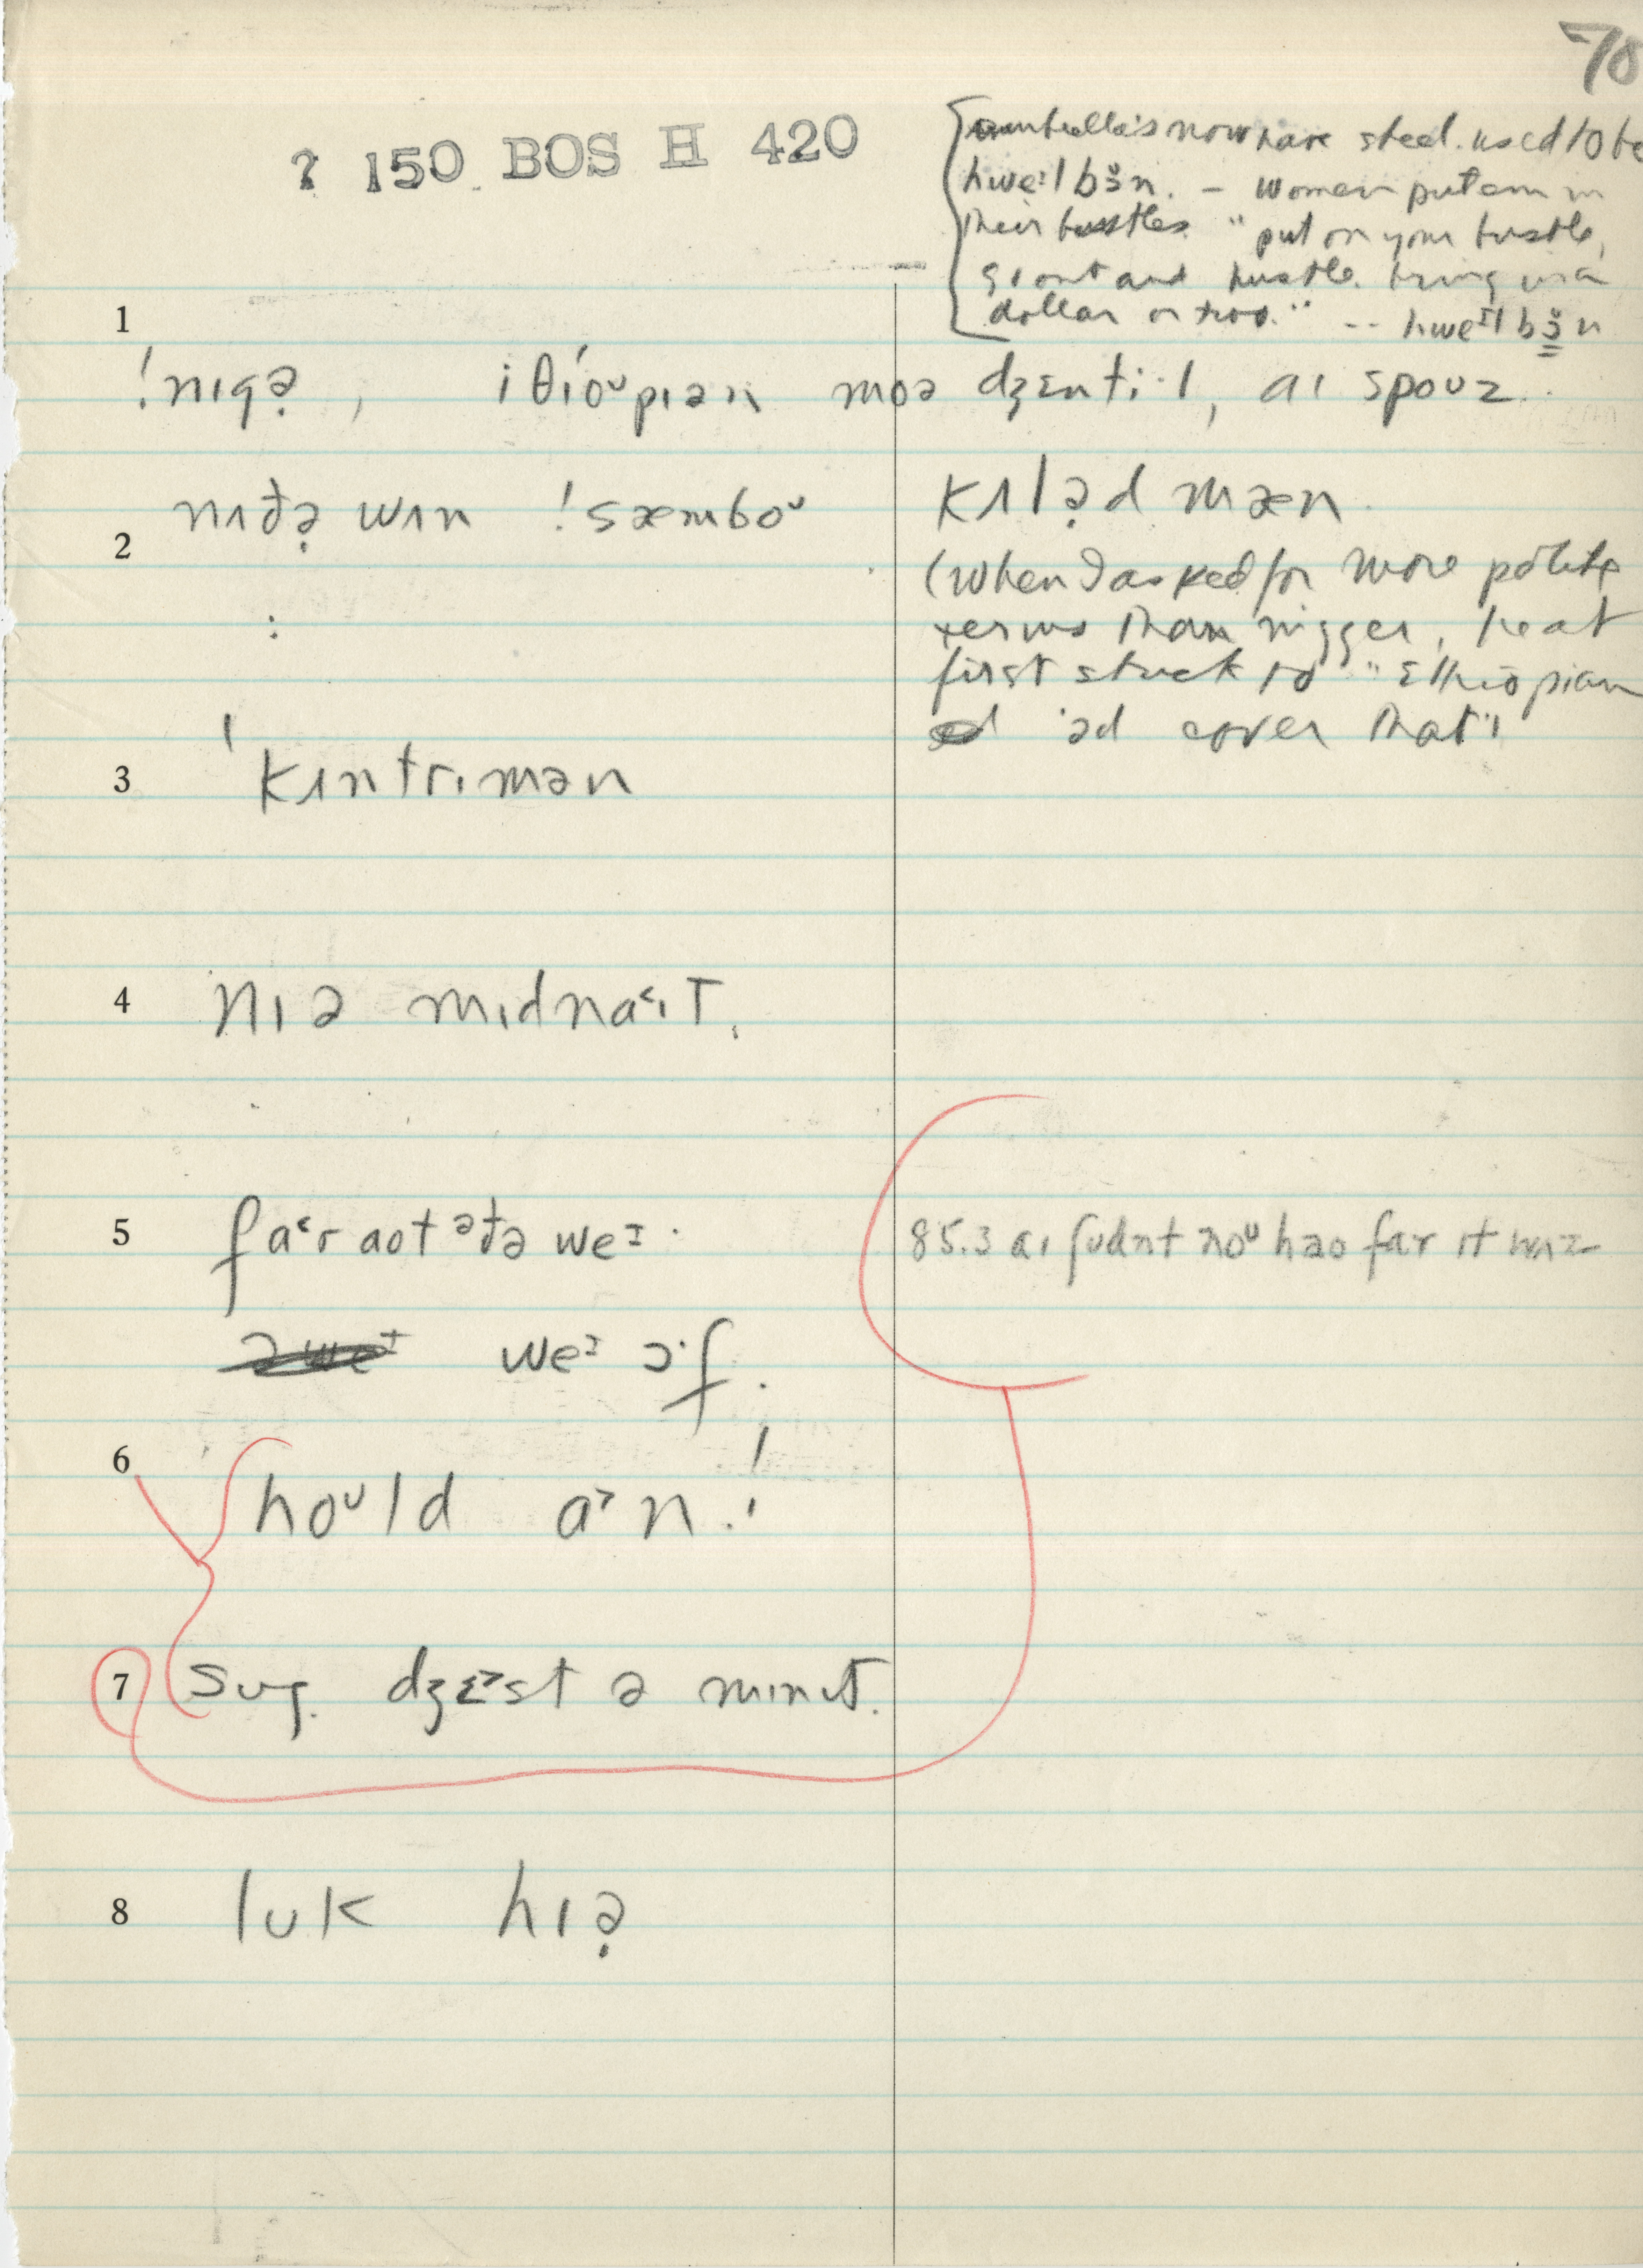 78
? 150 BOS H 420
umbrella's now have steel. used to be
hweᶦl bɜ̆n. – women put em in
their bustles. "put on your bustle,
g'out and hustle. bring in a
dollar or two." -- hweᶦl bɜ̆n
1
!nɪgə̣, iθíoᵘpɪən moə dʒɛntiˑl, aɪ spouz.
nɪðə̣ wʌn !sæmboᵘ
kʌlə̣d mæn.
2
(when I asked for more polite
terms than nigger, he at
first stuck to "Ethiopian
'əd cover that"
:
3
ˈkʌntrɪmən
4
nɪə mɪdnaʿɪt.
5
faʿr aot əðə weᶦ.
85.3 aɪ ʃudnt noᵘ hao far it wʌz
weᶦ ɔˑf.
6
hoᵘld a˃n.!
7
sug. dʒɛ˃st ə mɪnɪt.
8
luk hɪə̣